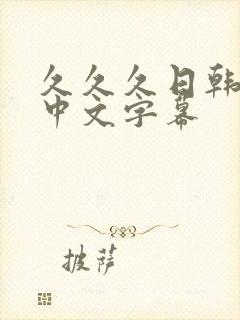 久久久日韩
中文字幕
披萨